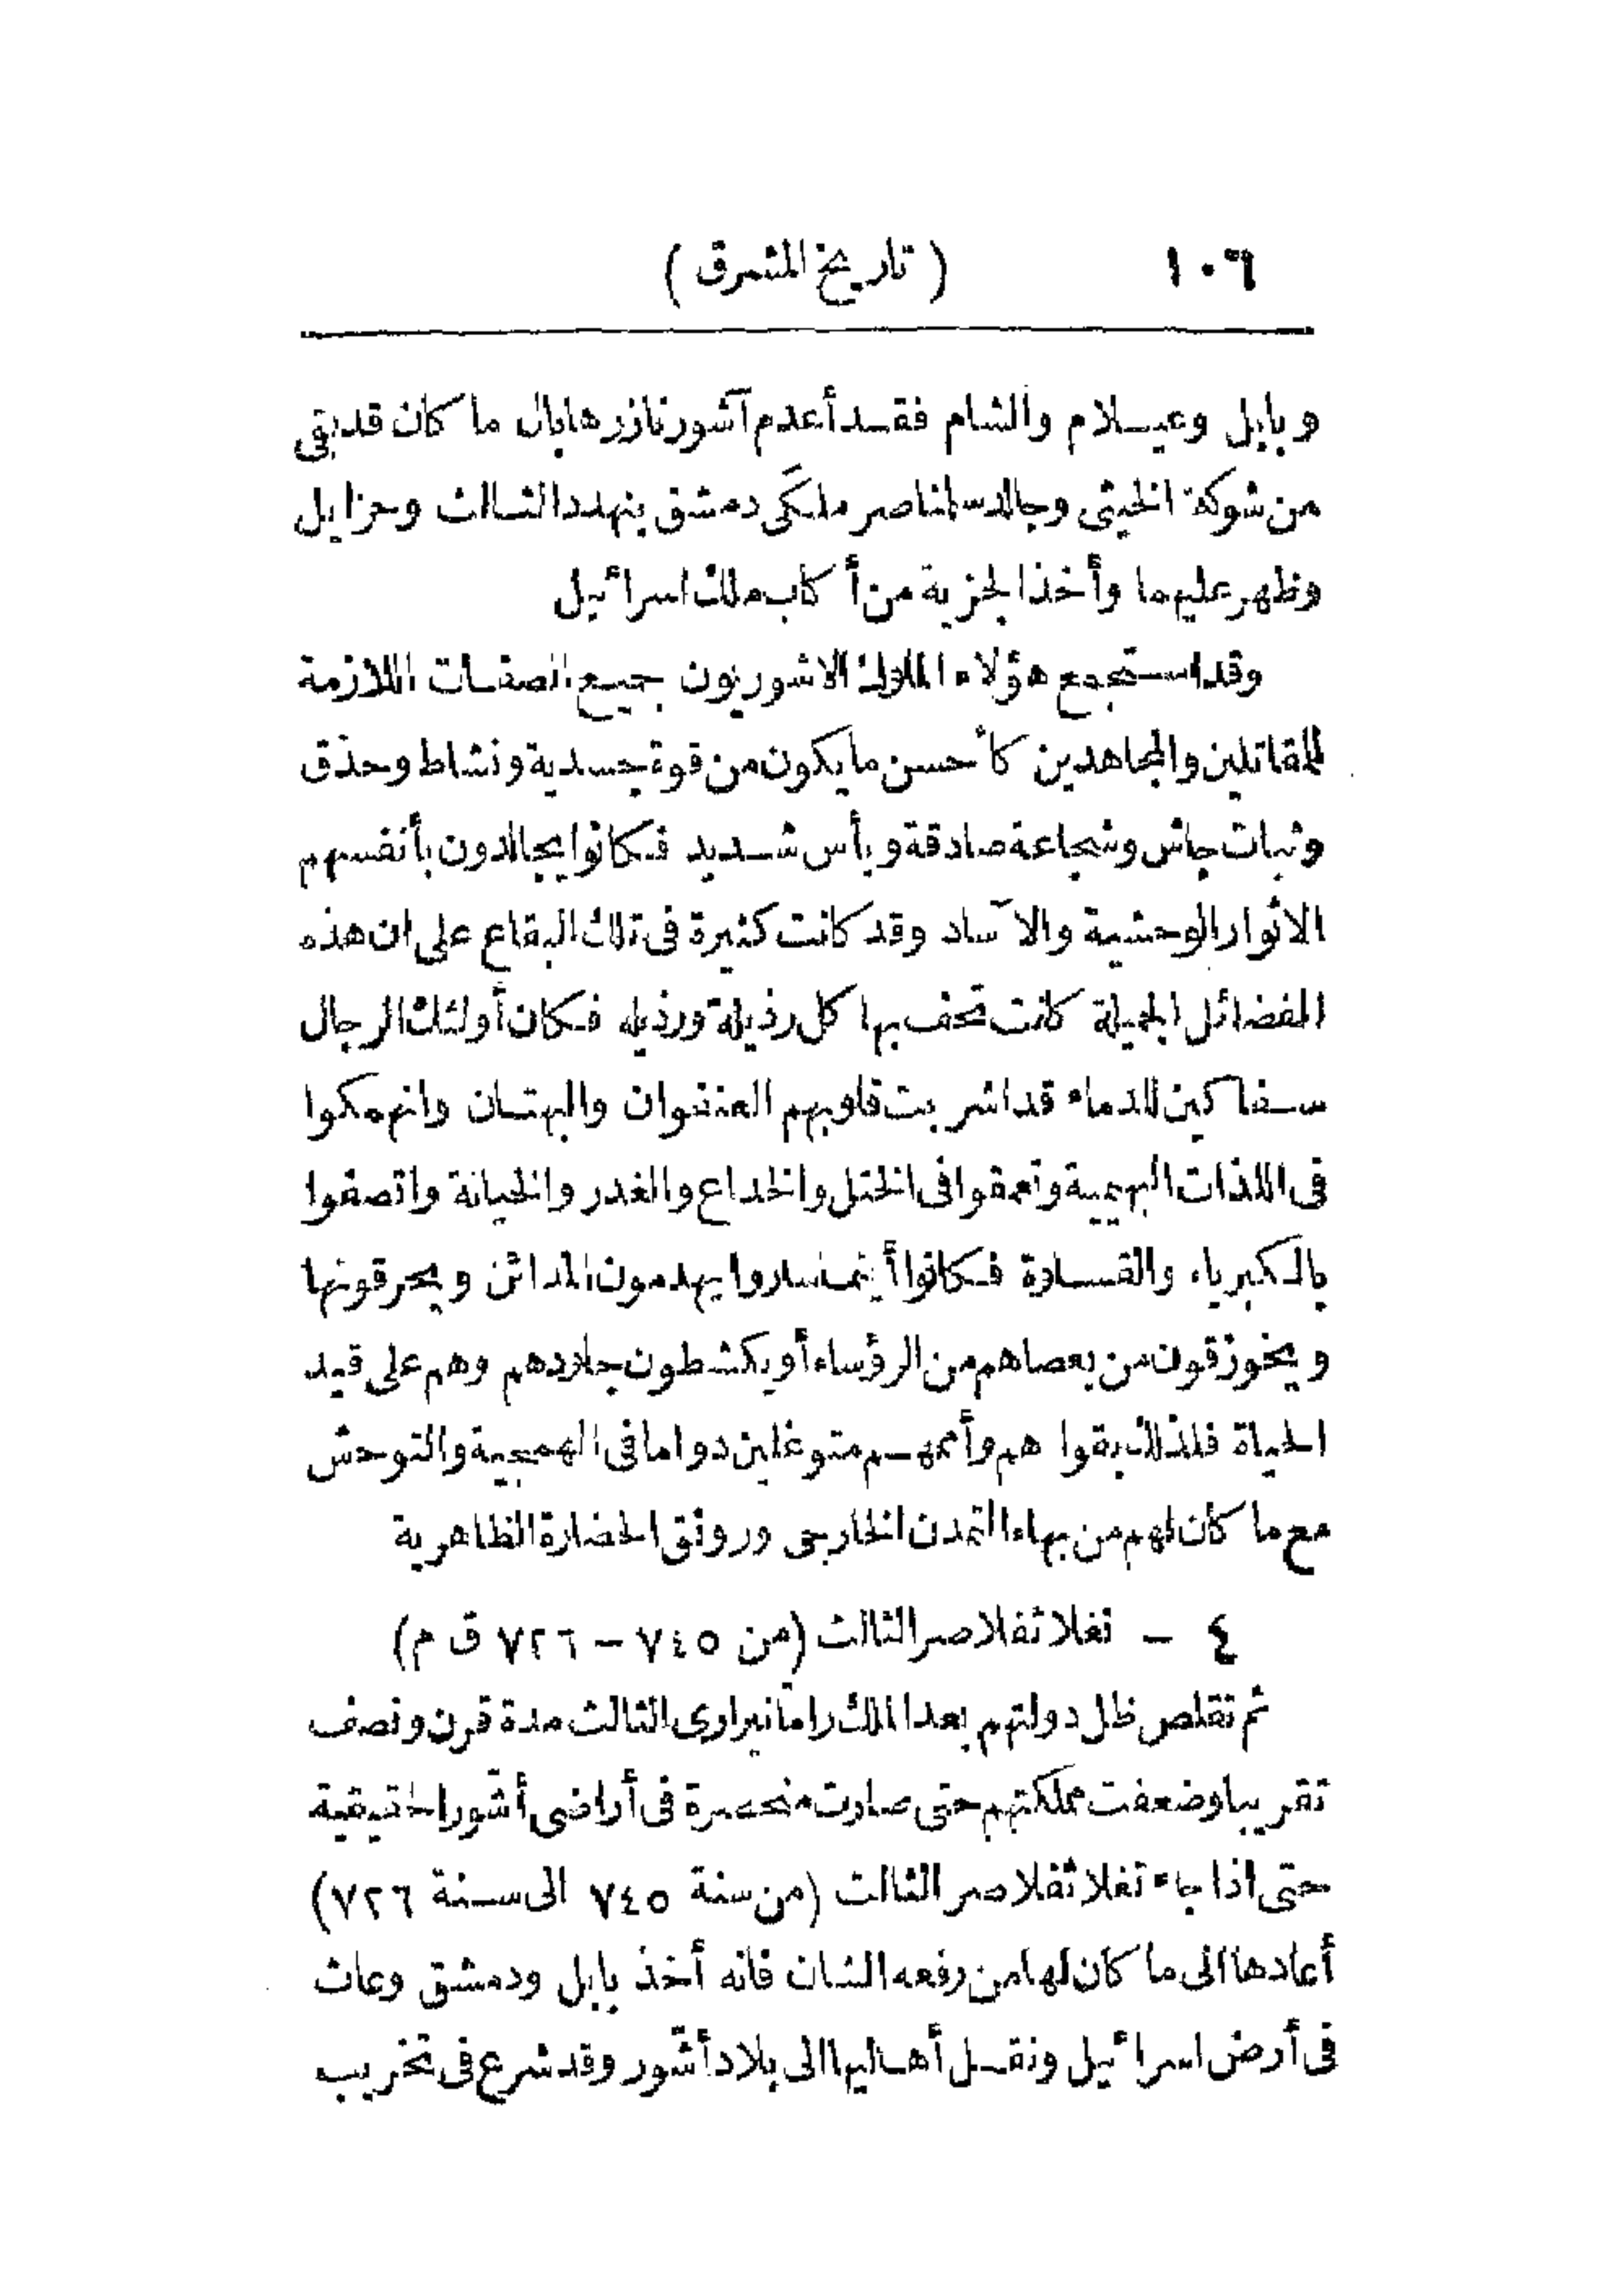 ١٠٦ ( تاريخ المشرق )
وبابل وعيلام والشام فقد أعدم آشورنازرهابال ما كان قد بقى
من شوكة الخيثى وجالد سلمناصر ملكى دمشق بنهدد الثالث وحزايل
وظهر عليهما وأخذ الجزية من أكاب ملك اسرائيل
وقد استجمع هؤلاء الملوك الاشوريون جميع الصفات اللازمة
للمقاتلين والمجاهدين كأحسن ما يكون من قوة جسدية ونشاط وحذق
وثبات جاش وشجاعة صادقة وبأس شديد فكانوا يجالدون بأنفسهم
الاثوار الوحشية والآساد وقد كانت كثيرة فى تلك البقاع على ان هذه
الفضائل الجميلة كانت تحف بها كل رذيلة ورذيله فكان أولئك الرجال
سفاكين للدماء قد اشربت قلوبهم العنفوان والبهتان وانهمكوا
فى اللذات البهيمية وتعمقوا فى الختل والخداع والغدر والخيانة واتصفوا
بالكبرياء والقساوة فكانوا أينما ساروا يهدمون المدائن ويحرقونها
ويخوزقون من يعصاهم من الرؤساء أو يكشطون جلودهم وهم على قيد
الحياة فلذلك بقوا هم وأممهم متوغلين دواما فى الهمجية والتوحش
مع ما كان لهم من بهاء التمدن الخارجى ورونق الحضارة الظاهرية
٤ – تغلاثفلاصر الثالث (من ٧٤٥ – ٧٢٦ ق م)
ثم تقلص ظل دولتهم بعد الملك رامانيرارى الثالث مدة قرن ونصف
تقريبا وضعفت مملكتهم حتى صارت منحصرة فى أراضى أشور الحقيقية
حتى اذا جاء تغلاثفلاصر الثالث (من سنة ٧٤٥ الى سنة ٧٢٦)
أعادها الى ما كان لها من رفعه الشان فانه أخذ بابل ودمشق وعاث
فى أرض اسرائيل ونقل أهاليها الى بلاد أشور وقد شرع فى تخريب